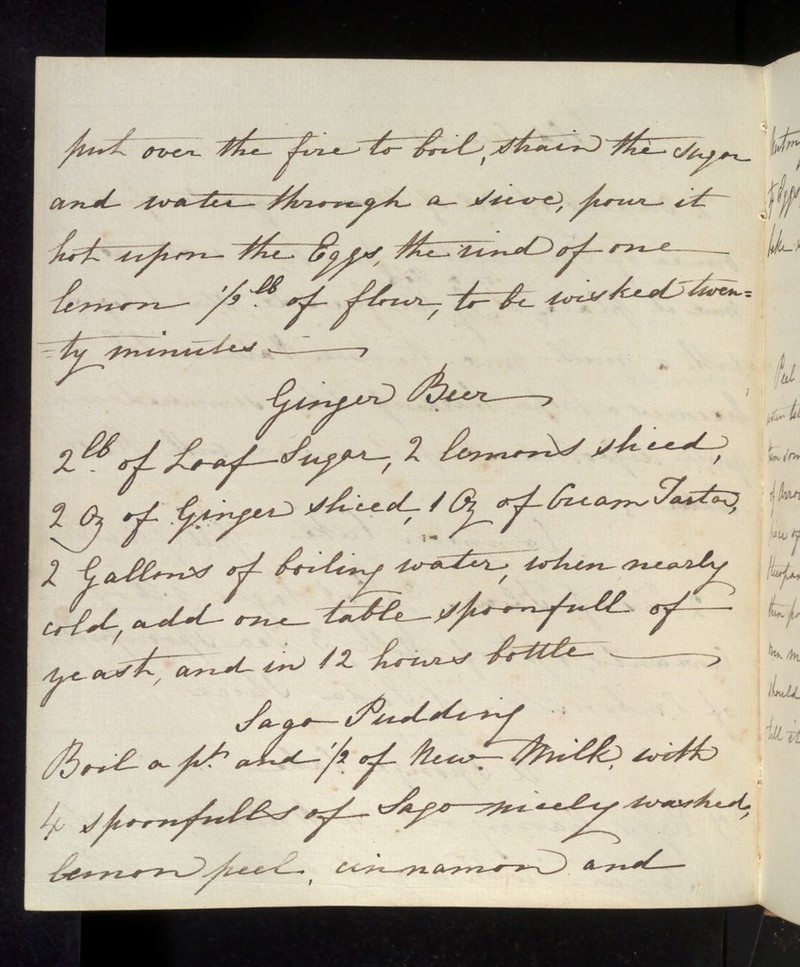 put over the fire to boil, strain the sugar
and water through a sieve, pour it
hot upon the Eggs, the rind of one
lemon 1/2 lb. of flour, to be wisked twen=
=ty minutes
Ginger Beer
2 lb. of Loaf Sugar, 2 lemons sliced,
2 Oz of Ginger sliced, 1 Oz of Cream Tartar,
2 Gallons of boiling water, when nearly
cold, add one table spoonfull of
yeast, and in 12 hours bottle
Sago Pudding
Boil a pt. and 1/2 of New Milk, with
4 spoonfulls of Sago nicely washed,
lemon peel, cinnamon and